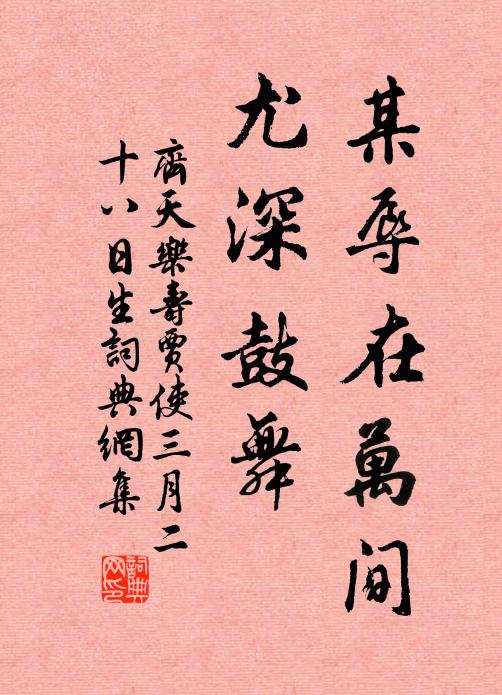 某辱在萬間
尤深鼓舞
齊天樂壽賈使三月二
十八日生詞典網集
詞典
网印